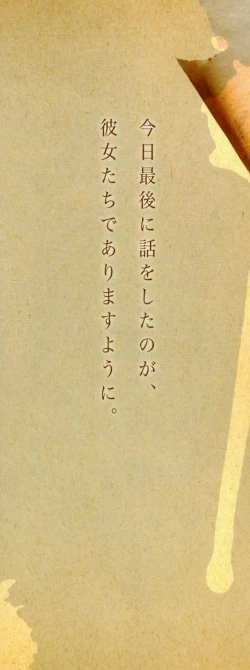 今日最後に話をしたのが、
彼女たちでありますように。